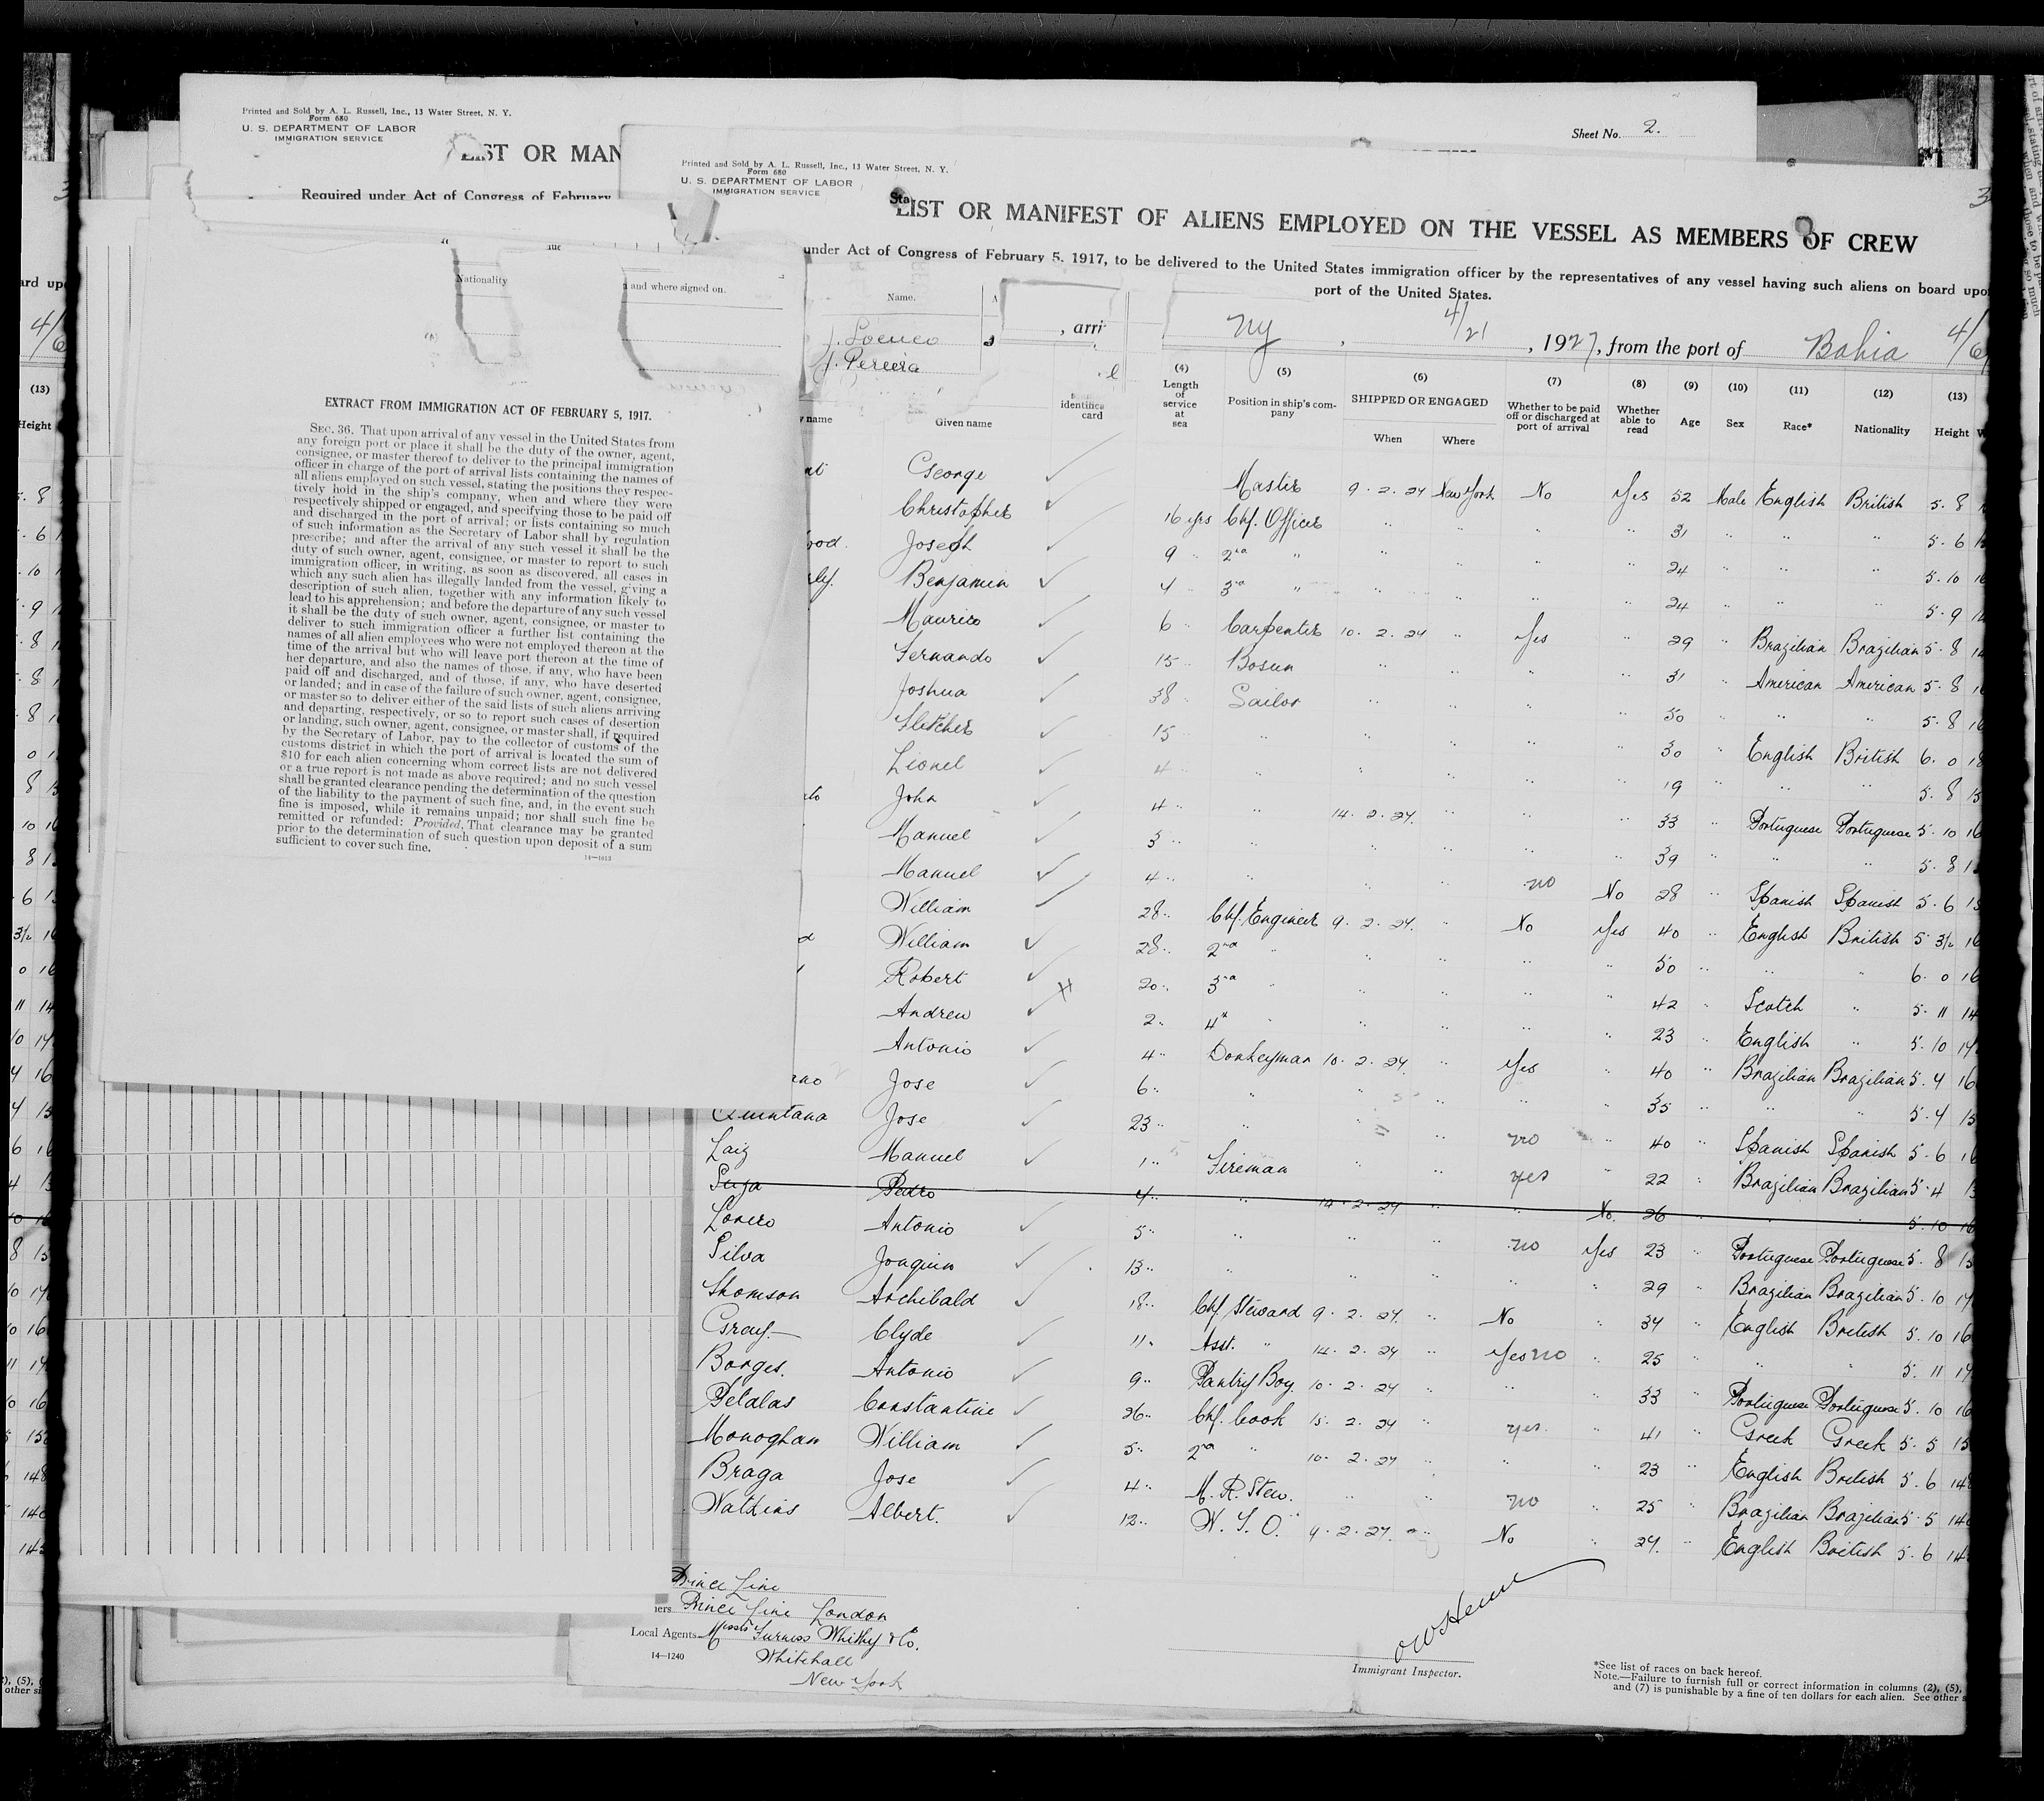 Printed and Sold by A. L. Russell, Inc., 13 Water Street, N. Y.
Form 680
U. S. DEPARTMENT OF LABOR
IMMIGRATION SERVICE
LIST OR MAN
Required under Act of Congress of February
Sheet No. 2.
Printed and Sold by A. L. Russell, Inc., 13 Water Street, N. Y.
Form 680
U. S. DEPARTMENT OF LABOR
IMMIGRATION SERVICE
LIST OR MANIFEST OF ALIENS EMPLOYED ON THE VESSEL AS MEMBERS OF CREW
under Act of Congress of February 5, 1917, to be delivered to the United States immigration officer by the representatives of any vessel having such aliens on board upo
port of the United States.
Nationality
and where signed on.
Name.
J. Pereira
, arri
NY, 4/21, 1927, from the port of Bahia 4/6
EXTRACT FROM IMMIGRATION ACT OF FEBRUARY 5, 1917.
SEC. 36. That upon arrival of any vessel in the United States from
any foreign port or place it shall be the duty of the owner, agent,
consignee, or master thereof to deliver to the principal immigration
officer in charge of the port of arrival lists containing the names of
all aliens employed on such vessel, stating the positions they respec-
tively hold in the ship's company, when and where they were
respectively shipped or engaged, and specifying those to be paid off
and discharged in the port of arrival; or lists containing so much
of such information as the Secretary of Labor shall by regulation
prescribe; and after the arrival of any such vessel it shall be the
duty of such owner, agent, consignee, or master to report to such
immigration officer, in writing, as soon as discovered, all cases in
which any such alien has illegally landed from the vessel, giving a
description of such alien, together with any information likely to
lead to his apprehension; and before the departure of any such vessel
it shall be the duty of such owner, agent, consignee, or master to
deliver to such immigration officer a further list containing the
names of all alien employees who were not employed thereon at the
time of the arrival but who will leave port thereon at the time of
her departure, and also the names of those, if any, who have been
paid off and discharged, and of those, if any, who have deserted
or landed; and in case of the failure of such owner, agent, consignee,
or master so to deliver either of the said lists of such aliens arriving
and departing, respectively, or so to report such cases of desertion
or landing, such owner, agent, consignee, or master shall, if required
by the Secretary of Labor, pay to the collector of customs of the
customs district in which the port of arrival is located the sum of
$10 for each alien concerning whom correct lists are not delivered
or a true report is not made as above required; and no such vessel
shall be granted clearance pending the determination of the question
of the liability to the payment of such fine, and, in the event such
fine is imposed, while it remains unpaid; nor shall such fine be
remitted or refunded: Provided, That clearance may be granted
prior to the determination of such question upon deposit of a sum
sufficient to cover such fine.
14—1613
Given name
identifica
card
(4) Length of service at sea
(5) Position in ship's company
(6) SHIPPED OR ENGAGED When Where
(7) Whether to be paid off or discharged at port of arrival
(8) Whether able to read
(9) Age
(10) Sex
(11) Race*
(12) Nationality
(13) Height
George Master 9. 2. 27 New York No Yes 52 Male English British 5. 8
Christopher 16 yrs Chf. Officer " " " " 31 " " " 5. 6
Joseph 9 " 2nd " " " " " 24 " " " 5. 10
Benjamin 4 " 3rd " " " " " 24 " " " 5. 9
Maurice 6 " Carpenter 10. 2. 27 " Yes " 29 " Brazilian Brazilian 5. 8
Fernando 15 " Bosun " " " " 31 " American American 5. 8
Joshua 38 " Sailor " " " " 50 " " " 5. 8
Fletcher 15 " " " " " " 30 " English British 6. 0
Lionel 4 " " " " " " 19 " " " 5. 8
John 4 " " 14. 2. 27. " " " 33 " Portuguese Portuguese 5. 10
Manuel 3 " " " " " " 39 " " " 5. 8
Manuel 4 " " " " no No 28 " Spanish Spanish 5. 6
William 28 " Chf. Engineer 9. 2. 27. " No Yes 40 " English British 5 3½
William 28 " 2nd " " " " " 50 " " " 6. 0
Robert 20 " 3rd " " " " " 42 " Scotch " 5. 11
Andrew 2 " 4th " " " " " 23 " English " 5. 10
Antonio 4 " Donkeyman 10. 2. 27. " Yes " 40 " Brazilian Brazilian 5. 4
Jose 6 " " " " " " 35 " " " 5. 4
Quintana Jose 23 " " " " no " 40 " Spanish Spanish 5. 6
Manuel 1 " Fireman " " yes " 22 " Brazilian Brazilian 5. 4
Pedro 4 " " 14. 2. 27 " " No. 26 " " " 5. 10
Antonio 5 " " " " no Yes 23 " Portuguese Portuguese 5. 8
Silva Joaquim 13 " " " " " " 29 " Brazilian Brazilian 5. 10
Thomson Archibald 18 " Chf Steward 9. 2. 27. " No " 34 " English British 5. 10
Gray. Clyde 11 " Asst. " 14. 2. 27 " Yes no " 25 " " " 5. 11
Borges. Antonio 9 " Pantry Boy. 10. 2. 27 " " " 33 " Portuguese Portuguese 5. 10
Petalas Constantine 26 " Chf. Cook 15. 2. 27 " yes. " 41 " Greek Greek 5. 5
Monoghan William 5 " 2nd " 10. 2. 27 " " " 23 " English British 5. 6
Braga Jose 4 " M. R. Stew. " " no " 25 " Brazilian Brazilian 5. 5
Watkins Albert. 12 " W. T. O. 9. 2. 27. " No " 27. " English British 5. 6
Prince Line
Prince Line London
Local Agents Messrs Furness Whithy & Co.
14—1240
Whitehall
New York
Immigrant Inspector.
*See list of races on back hereof.
Note.—Failure to furnish full or correct information in columns (2), (5),
and (7) is punishable by a fine of ten dollars for each alien. See other s